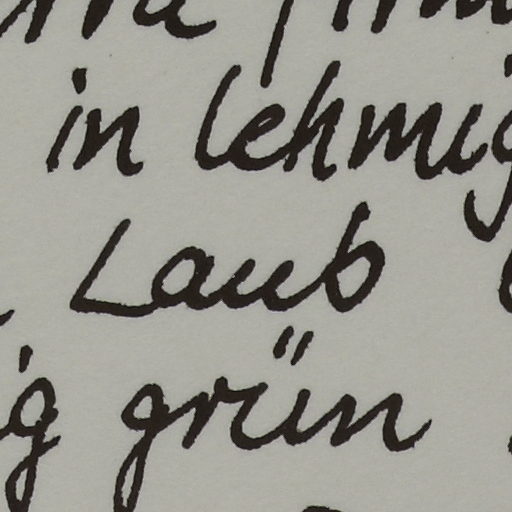 in lehmig
Laub
ig grün